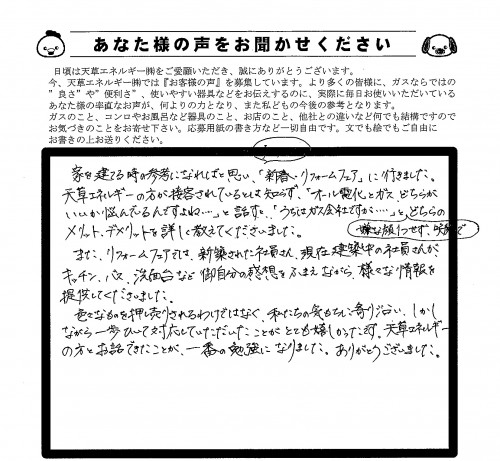 あなた様の声をお聞かせください
日頃は天草エネルギー㈱をご愛顧いただき、誠にありがとうございます。
今、天草エネルギー㈱では『お客様の声』を募集しています。より多くの皆様に、ガスならではの
”良さ”や”便利さ”、使いやすい器具などをお伝えするのに、実際に毎日お使いいただいている
あなた様の率直なお声が、何よりの力となり、また私どもの今後の参考となります。
ガスのこと、コンロやお風呂など器具のこと、お店のこと、他社との違いなど何でも結構ですので
お気づきのことをお寄せ下さい。応募用紙の書き方など一切自由です。文でも絵でもご自由に
お書きの上お送りください。
家を建てる時の参考になればと思い、「新春・リフォームフェア」に行きました。
天草エネルギーの方が接客されているとは知らず、「オール電化とガス、どちらが
いいか悩んでるんですよね…」と話すと、「うちはガス会社ですが……」と、どちらの
メリット、デメリットを詳しく教えてくださいました。
嫌な顔1つせず、笑顔で
また、リフォームフェアでは、新築された社員さん、現在建築中の社員さんが、
キッチン、バス、洗面台など御自分の感想をふまえながら、様々な情報を
提供してくださいました。
色々なものを押し売りされるわけではなく、私たちの気もちに寄り沿い、しかし
ながら一歩ひいて対応していただいたことがとても嬉しかったです。天草エネルギー
の方とお話できたことが、一番の勉強になりました。ありがとうございました。